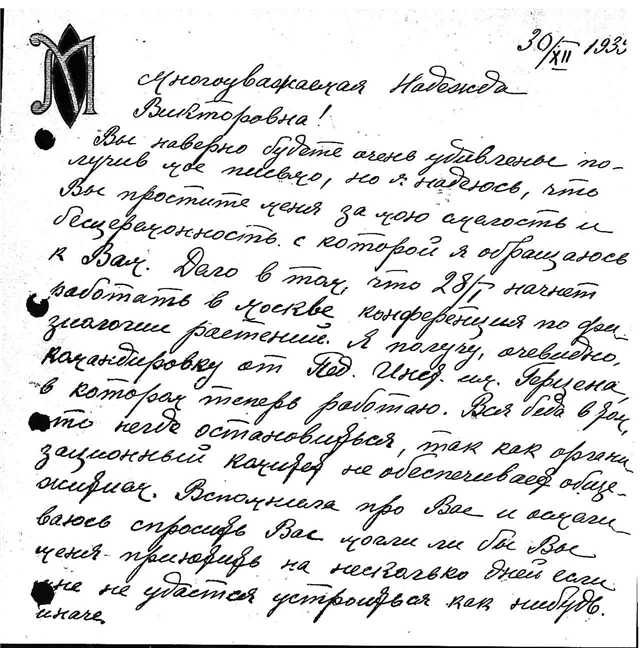 М
30/XII 193
Многоуважаемая Надежда
Викторовна!
Вы наверно будете очень удивлены по-
лучив мое письмо, но я надеюсь, что
Вы простите меня за мою смелость и
бесцеремонность с которой я обращаюсь
к Вам. Дело в том, что 28/I начнет
работать в Москве конференция по фи-
зиологии растений. Я получу, очевидно,
командировку от Пед. Инст. им. Герцена,
в котором теперь работаю. Вся беда в том,
что негде остановиться, так как органи
зационный комитет не обеспечивает обще-
житием. Вспомнила про Вас и осмели
ваюсь спросить Вас могли ли бы Вы
меня приютить на несколько дней если
мне не удастся устроиться как нибудь
иначе.